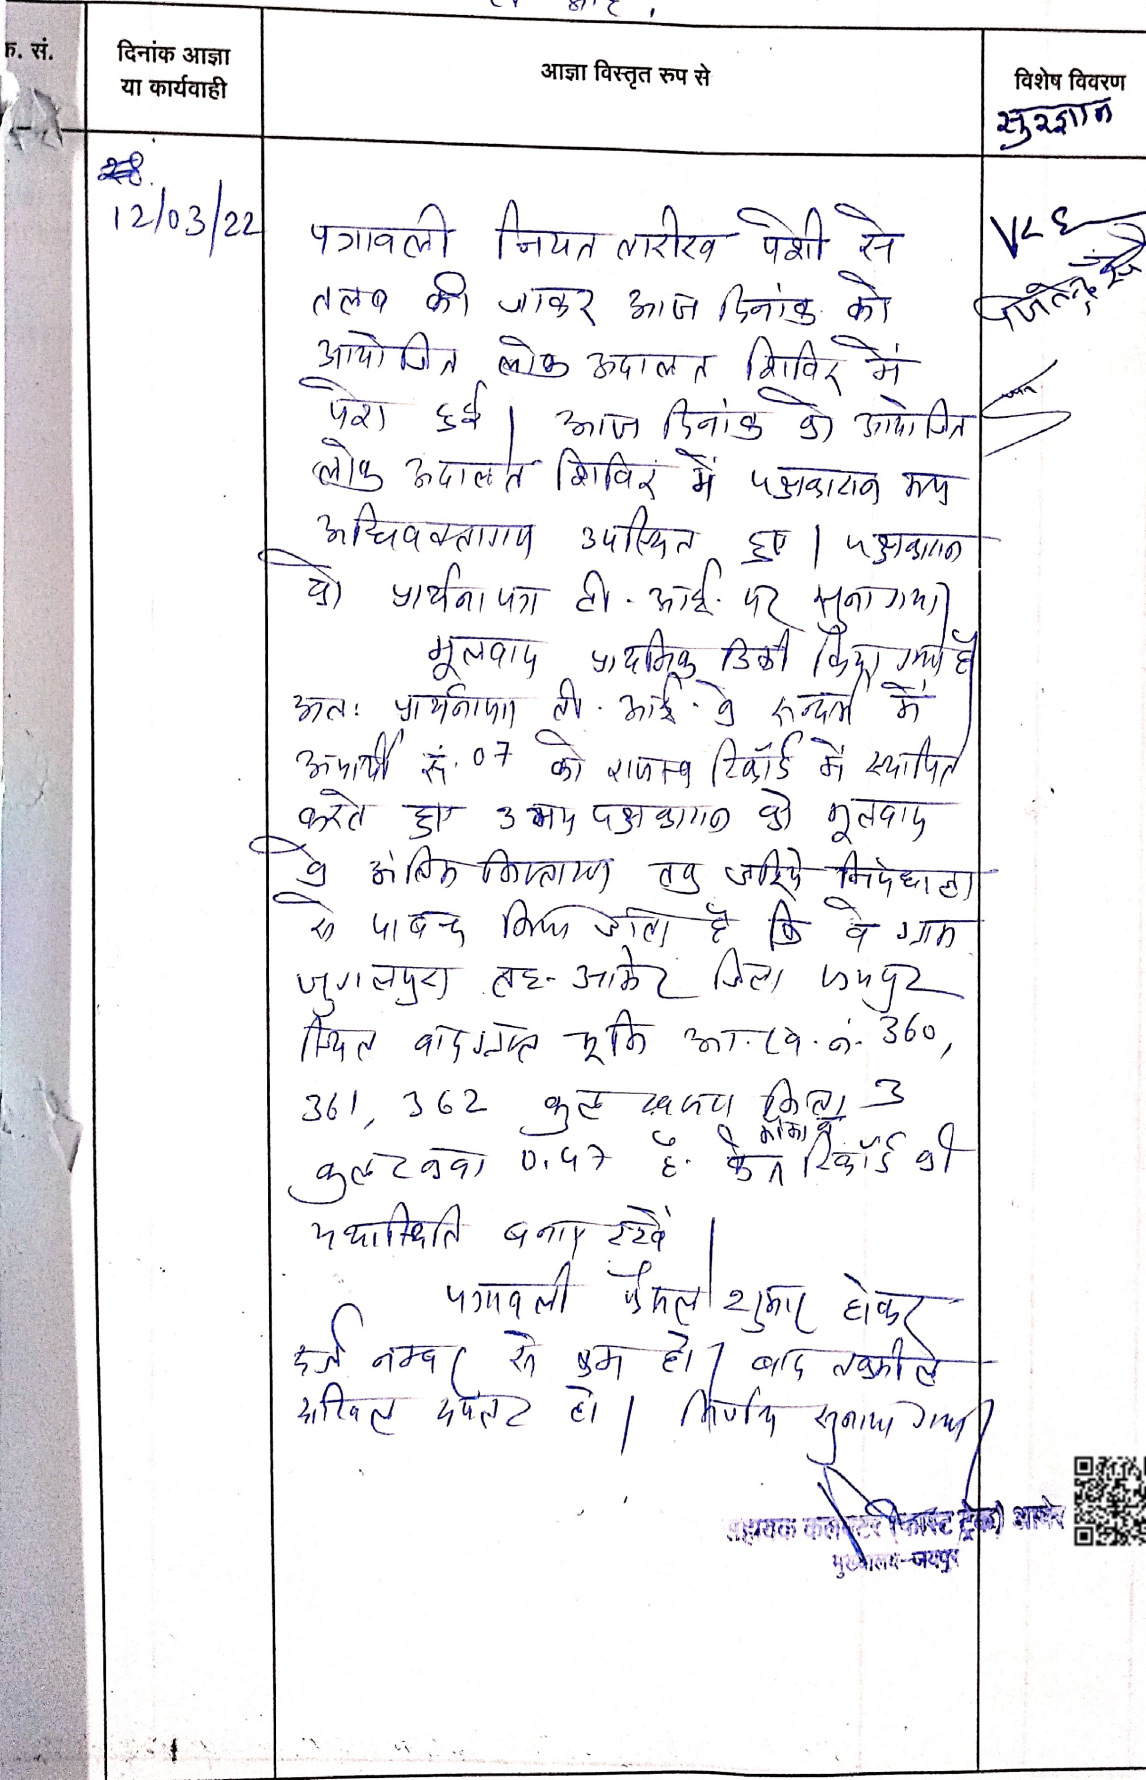 क. सं.
दिनांक आज्ञा
या कार्यवाही
आज्ञा विस्तृत रुप से
विशेष विवरण
सुरज्ञान
12/03/22
पत्रावली नियत तारीख पेशी से
तलब की जाकर आज दिनांक को
आयोजित लोक अदालत शिविर में
पेश हुई | आज दिनांक को आयोजित
लोक अदालत शिविर में पक्षकारान मय
अधिवक्तागण उपस्थित हुए | पक्षकारान
को प्रार्थना पत्र टी. आई. पर सुना गया
मूलवाद प्राथमिक डिक्री किया गया है
अतः प्रार्थनापत्र टी. आई. के सन्दर्भ में
अप्रार्थी सं. 07 को राजस्व रिकॉर्ड में स्थापित
करते हुए उभय पक्षकारान को मूलवाद
के अंतिम निस्तारण तक जरिये निषेधाज्ञा
से पाबन्द किया जाता है कि वे ग्राम
जुगलपुरा तह. आमेर जिला जयपुर
स्थित वादग्रस्त भूमि आ. ख. नं. 360,
361, 362 कुल खसरा किता 3
कुल रकबा 0.47 है. के मौका व रिकॉर्ड की
यथास्थिति बनाए रखें |
पत्रावली फैसल शुमार होकर
दर्ज नम्बर से कम हो | बाद तकमील
दाखिल दफ्तर हो | निर्णय सुनाया गया |
सहायक कलक्टर (फास्ट ट्रेक) आमेर
मुख्यालय-जयपुर